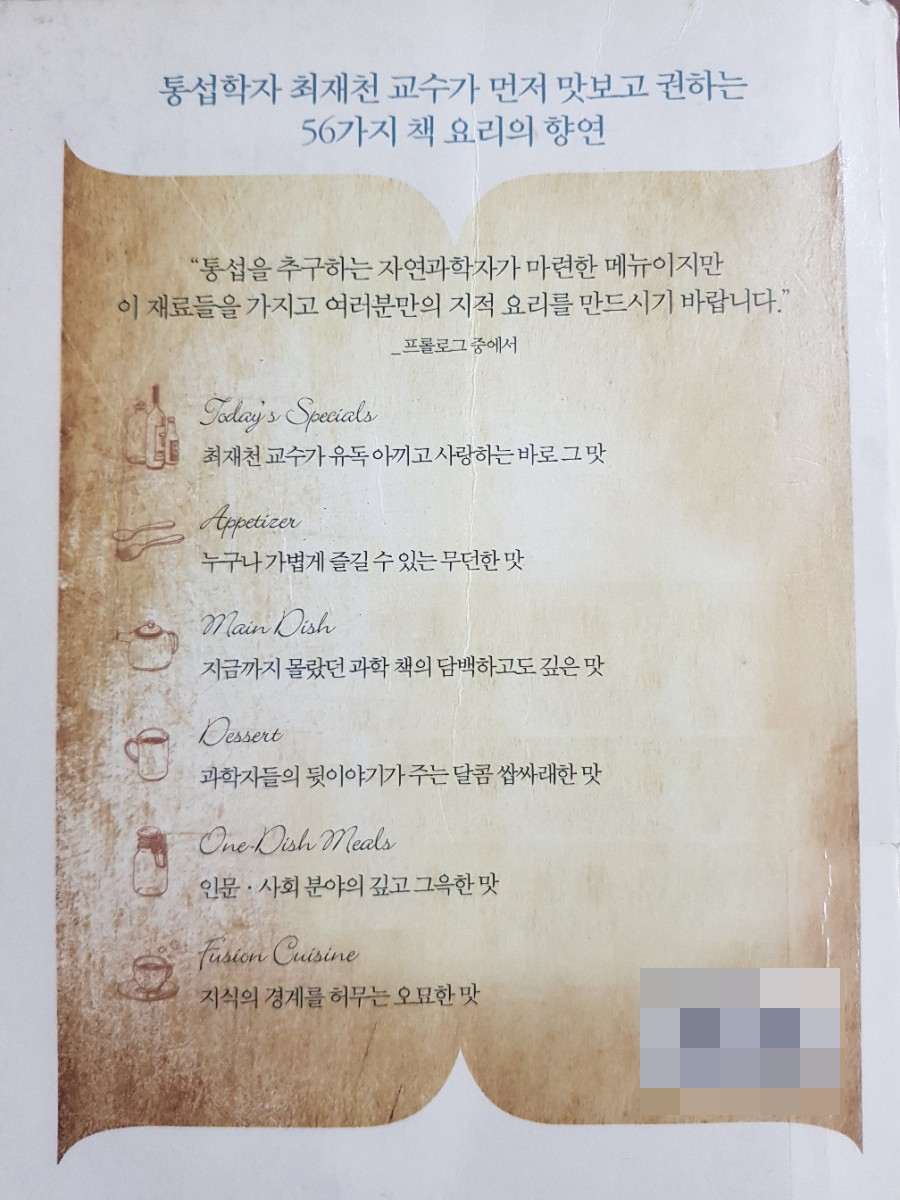 통섭학자 최재천 교수가 먼저 맛보고 권하는
56가지 책 요리의 향연
“통섭을 추구하는 자연과학자가 마련한 메뉴이지만
이 재료들을 가지고 여러분만의 지적 요리를 만드시기 바랍니다.”
_프롤로그 중에서
Today's Specials
최재천 교수가 유독 아끼고 사랑하는 바로 그 맛
Appetizer
누구나 가볍게 즐길 수 있는 무던한 맛
Main Dish
지금까지 몰랐던 과학 책의 담백하고도 깊은 맛
Dessert
과학자들의 뒷이야기가 주는 달콤 쌉싸래한 맛
One-Dish Meals
인문·사회 분야의 깊고 그윽한 맛
Fusion Cuisine
지식의 경계를 허무는 오묘한 맛